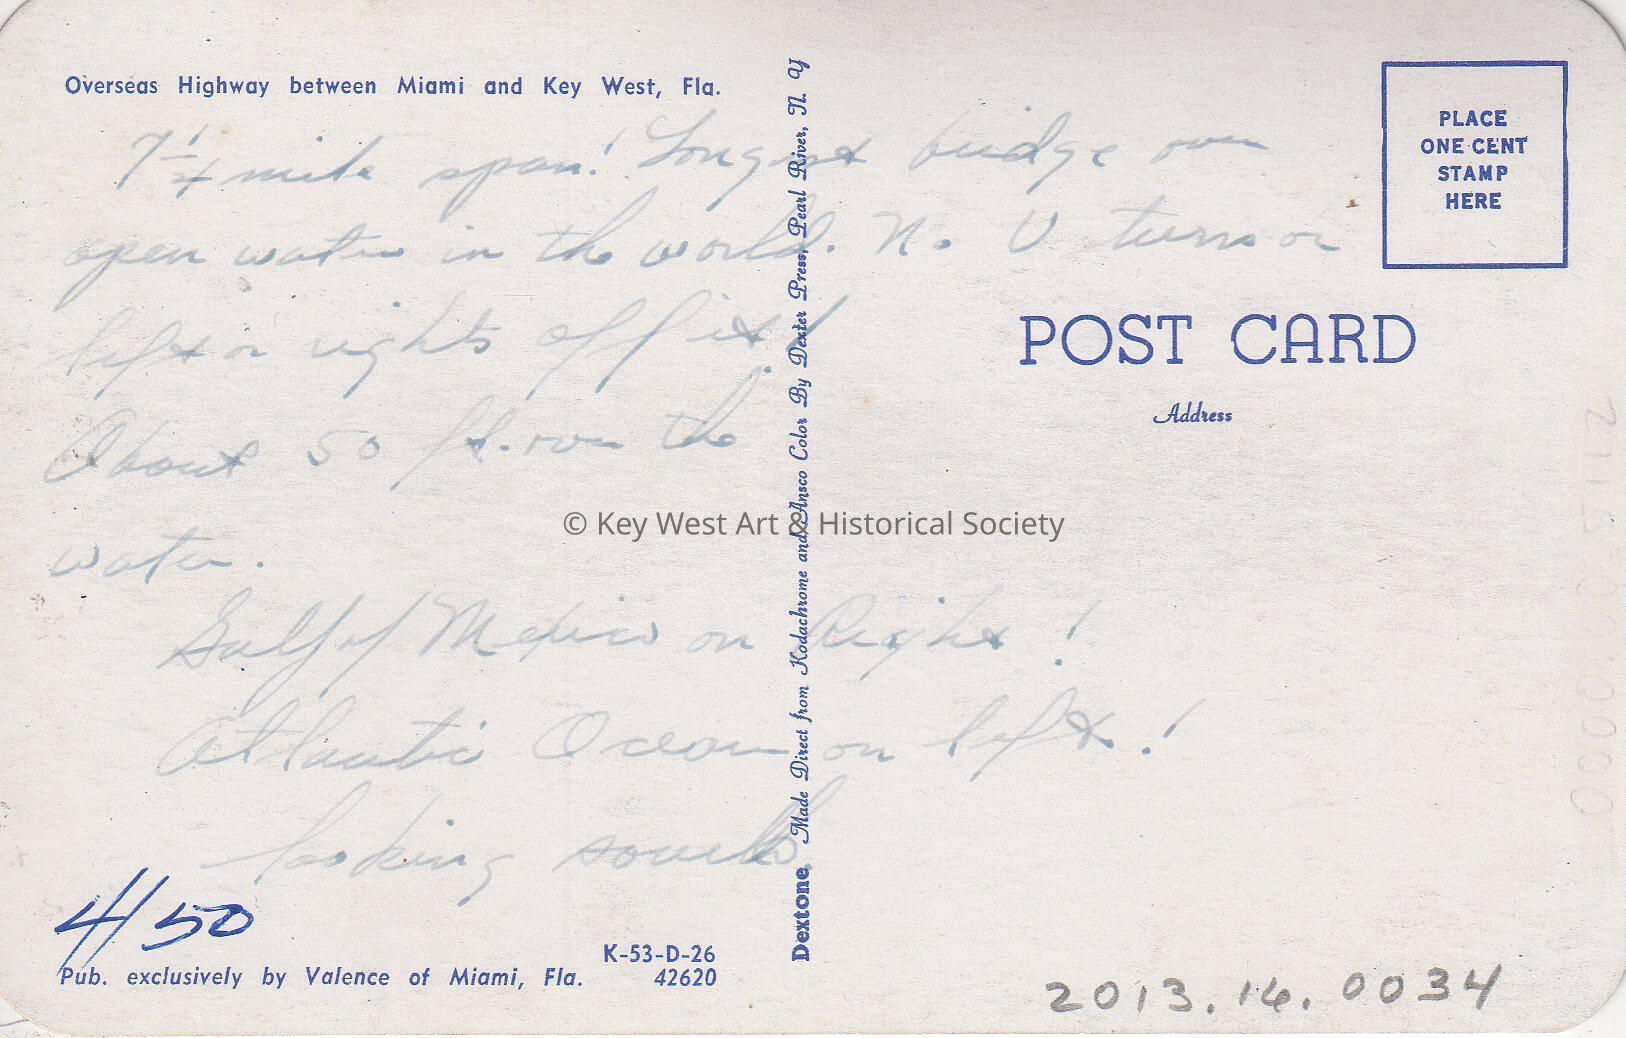 Overseas Highway between Miami and Key West, Fla.
7 1/4 mile span! Longest bridge over
open water in the world. No U turns or
left or rights off it!
About 50 ft. over the
water.
Gulf of Mexico on Right!
Atlantic Ocean on left!
looking south.
4/50
K-53-D-26
Pub. exclusively by Valence of Miami, Fla. 42620
Dextone, Made Direct from Kodachrome and Ansco Color By Dexter Press, Pearl River, N. Y
PLACE
ONE CENT
STAMP
HERE
POST CARD
Address
© Key West Art & Historical Society
2013.16.0034